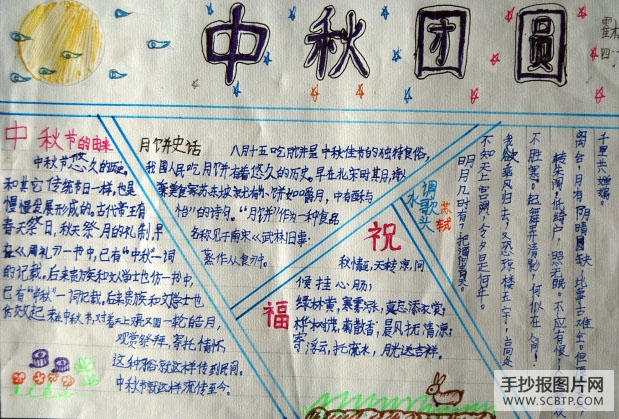 中秋团圆
霍林
四
中秋节的由来
中秋节有悠久的历史,
和其它传统节日一样,也是
慢慢发展形成的。古代帝王有
春天祭日,秋天祭月的礼制,早
在《周礼》一书中,已有“中秋”一词
的记载。后来贵族和文人学士也仿
已有“中秋”一词记载,后来贵族和文人学士也
仿效起来,中秋书,对着天上又亮又圆一轮皓月,
观赏祭拜,寄托情怀,
这种习俗就这样传到民间,
中秋节就这样流传至今。
月饼史话
八月十五吃月饼是中秋佳节的独特食俗,
我国人民吃月饼有着悠久的历史。早在北宋时其月,
苏东坡就有“小饼如嚼月,中有酥与
怡”的诗句。“月饼”作为一种食品
名称见于南宋《武林旧事·
蒸作从食》中。
祝福
秋情短,天转凉,问
候挂心肠;
绿林黄,寒雾涨,莫忘添衣裳;
菊散香,晨风托情凉;
寄浮云,托流水,月光送吉祥。
水调歌头
苏轼
明月几时有?把酒问青天。
不知天上宫阙,今夕是何年。
我欲乘风归去,又恐琼楼玉宇,高处
不胜寒。起舞弄清影,何似在人间!
转朱阁,低绮户,照无眠。不应有恨,
阴晴圆缺,此事古难全。但愿人
千里共婵娟
手抄报图片网
WWW.SCBTP.COM